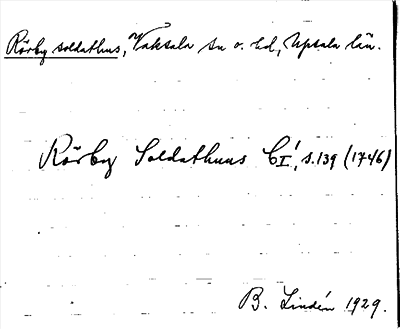 Rörby soldathus, Vaksala sn o. hd, Upsala län.
Rörby Soldathuus C I¹, s. 139 (1746)
B. Lindén 1929.